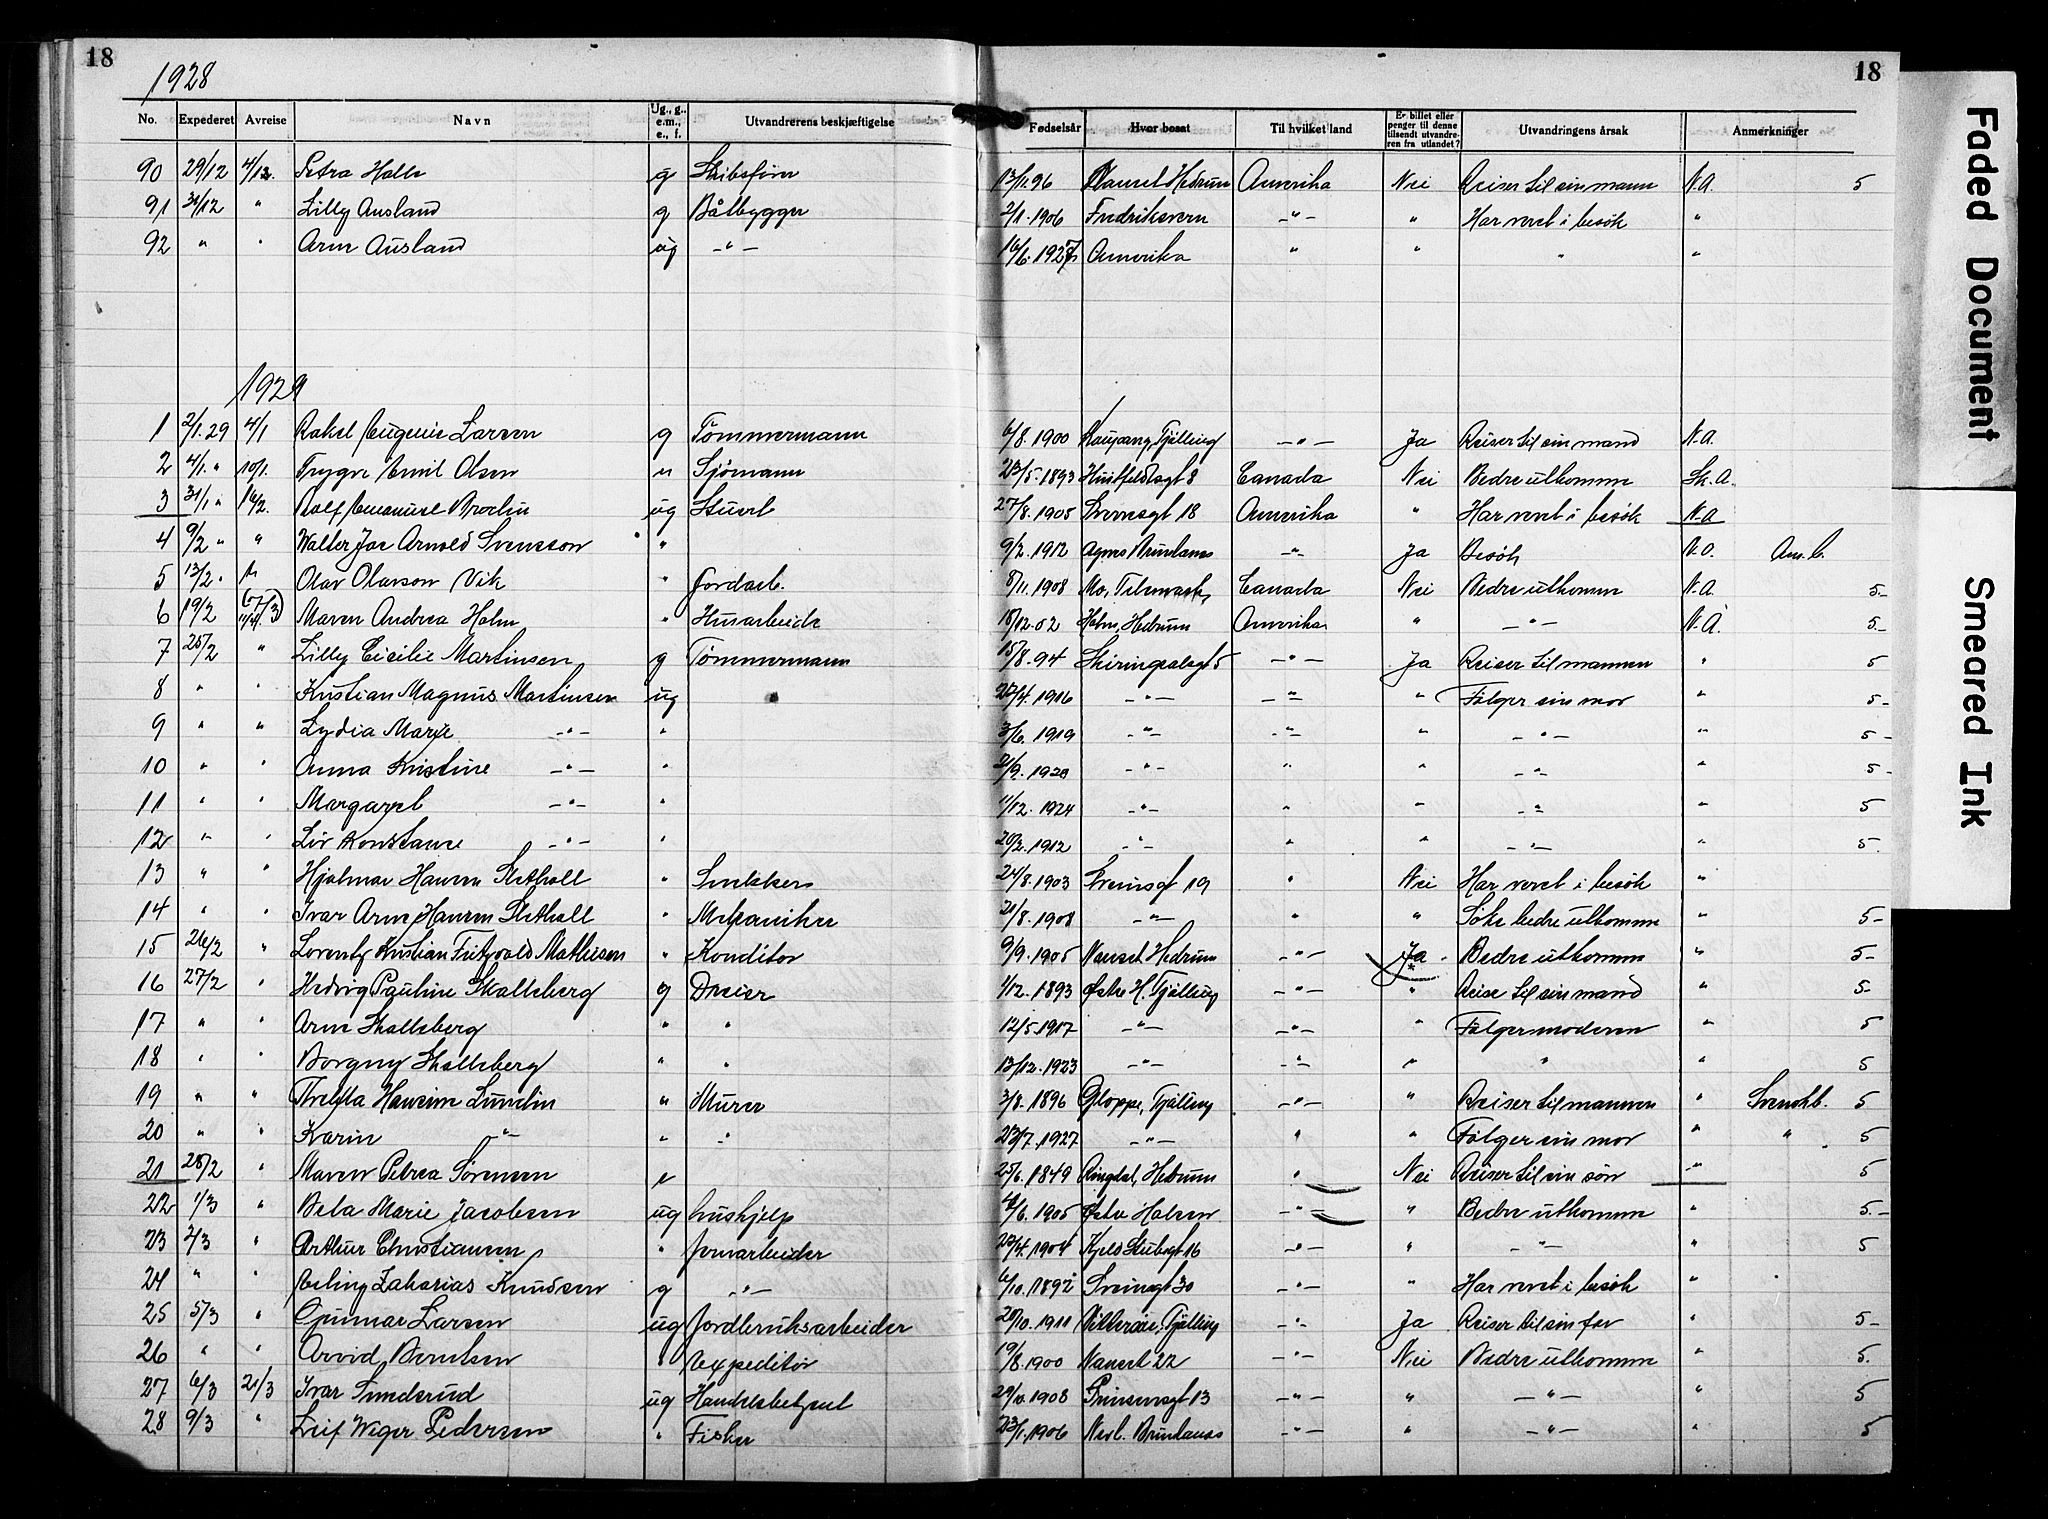 18
18
1928
No. Expederet Avreise Navn Ug., g., e.m., e., f. Utvandrerens beskjæftigelse Fødselsår Hvor bosat Til hvilket land Er billet eller penger til denne tilsendt utvandreren fra utlandet? Utvandringens årsak Anmerkninger
90 29/12 4/12. Petra Halle g Skibsfører 13/11.96 Nanset Hedrum Amerika Nei Reiser til sin mann N.A. 5
91 31/12 " Lilly Ausland g Båtbygger 2/1.1906 Fredriksvern -"- " Har veret i besök "
92 " " Arne Ausland ug -"- 16/6.1927 Amerika " " " "
1929
1 2/1.29 4/1 Rakel Eugenie Larsen g Tømmermann 6/8.1900 Kaupang, Tjølling -"- Ja Reiser til sin mand N.A.
2 4/1. " 10/1. Trygve Emil Olsen " Sjømann 23/5.1893 Huitfeldtsgt 8 Canada Nei Bedre utkomme Sk.A.
3 31/1 " 16/2. Rolf Emanuel Brodin ug Stuert 27/8.1905 Sverresgt 18 Amerika " Har veret i besök N.A
4 9/2 " " Walter Jae Arnold Svensson " 9/2.1912 Agnes Brunlanes " Ja Besök N.A. Am.b.
5 13/2. " Olav Olavson Vik " Jordarb. 8/11.1908 Mo, Telemark, Canada Nei Bedre utkomme N.A. 5-
6 19/2 Maren Andrea Holm " Husarbeide 18/12.02 Holm, Hedrum Amerika " -"- N.A. 5-
7 25/2 " Lilly Cicilie Martinsen g Tømmermann 15/8.94 Skiringsalsgt 5 -"- Ja Reiser til mannen " 5
8 " " Kristian Magnus Martinsen ug 25/4.1916 -"- -"- " Følger sin mor " 5-
9 " " Lydia Marie -"- " 3/6.1919 -"- -"- " -"- " 5-
10 " " Anna Kristine -"- " 2/9.1920 -"- " " -"- " 5-
11 " " Margaret -"- " 11/12.1924 -"- " " -"- " 5
12 " " Liv Konstance -"- " 20/2.1912 -"- " " -"- " 5.
13 " " Hjalmar Hansen Sletholt " Snekker 24/8.1903 Sveinsgt 19 " Nei Har veret i besök "
14 " " Ivar Arne Hansen Sletholt " Mekaniker 21/8.1908 -"- " " Söke bedre utkomme " 5-
15 26/2 " Lorentz Kristian Fritzvold Mathisen " Konditor 9/9.1905 Nanset Hedrum -"- Ja - Bedre utkomme " 5-
16 27/2 " Hedvig Pauline Skalleberg g Dreier 1/12.1893 Østre H. Tjølling -"- " Reise til sin mand " 5-
17 " " Arne Skalleberg " " 12/5.1917 -"- -"- " Følger moderen " 5
18 " " Borgny Skalleberg " " 13/12.1923 -"- -"- " " " 5
19 " " Hansine Lundin " Murer 3/8.1896 Gloppe, Tjølling -"- " Reiser til mannen " Svenskb. 5
20 " " Karin " " " 23/7.1927 -"- " " Følger sin mor " " 5
21 28/2 " Maren Petrea Sørensen e 25/6.1849 Ringdal, Hedrum " Nei Reiser til sin sön " 5
22 1/3 " Beta Marie Jacobsen ug hushjelp 4/6.1905 Østre Halsen -"- " Bedre utkomme " 5-
23 2/3 " Arthur Christiansen " Jernarbeider 25/4.1904 Kjeld Stubsgt 16 -"- " -"- " 5
24 " " Erling Zakarias Knudsen g -"- 6/10.1892 Sveinsgt 30 -"- " Har veret i besök "
25 5/3 " Gunnar Larsen ug Jordbruksarbeider 20/10.1911 Vitterøie, Tjølling -"- Ja Reiser til sin far " 5-
26 " " Arvid Berntsen " Expeditør 19/8.1900 Nanset 22 -"- Nei Bedre utkomme " 5.
27 6/3 21/3 Ivar Sunderud ug Handelsbetjent 29/10.1908 Prinsensgt 13 -"- " -"- " 5
28 9/3 " Leif Weger Pedersen " Fisker 23/1.1906 Nevl. Brunlanes -"- " -"- " 5
Faded Document
Smeared Ink